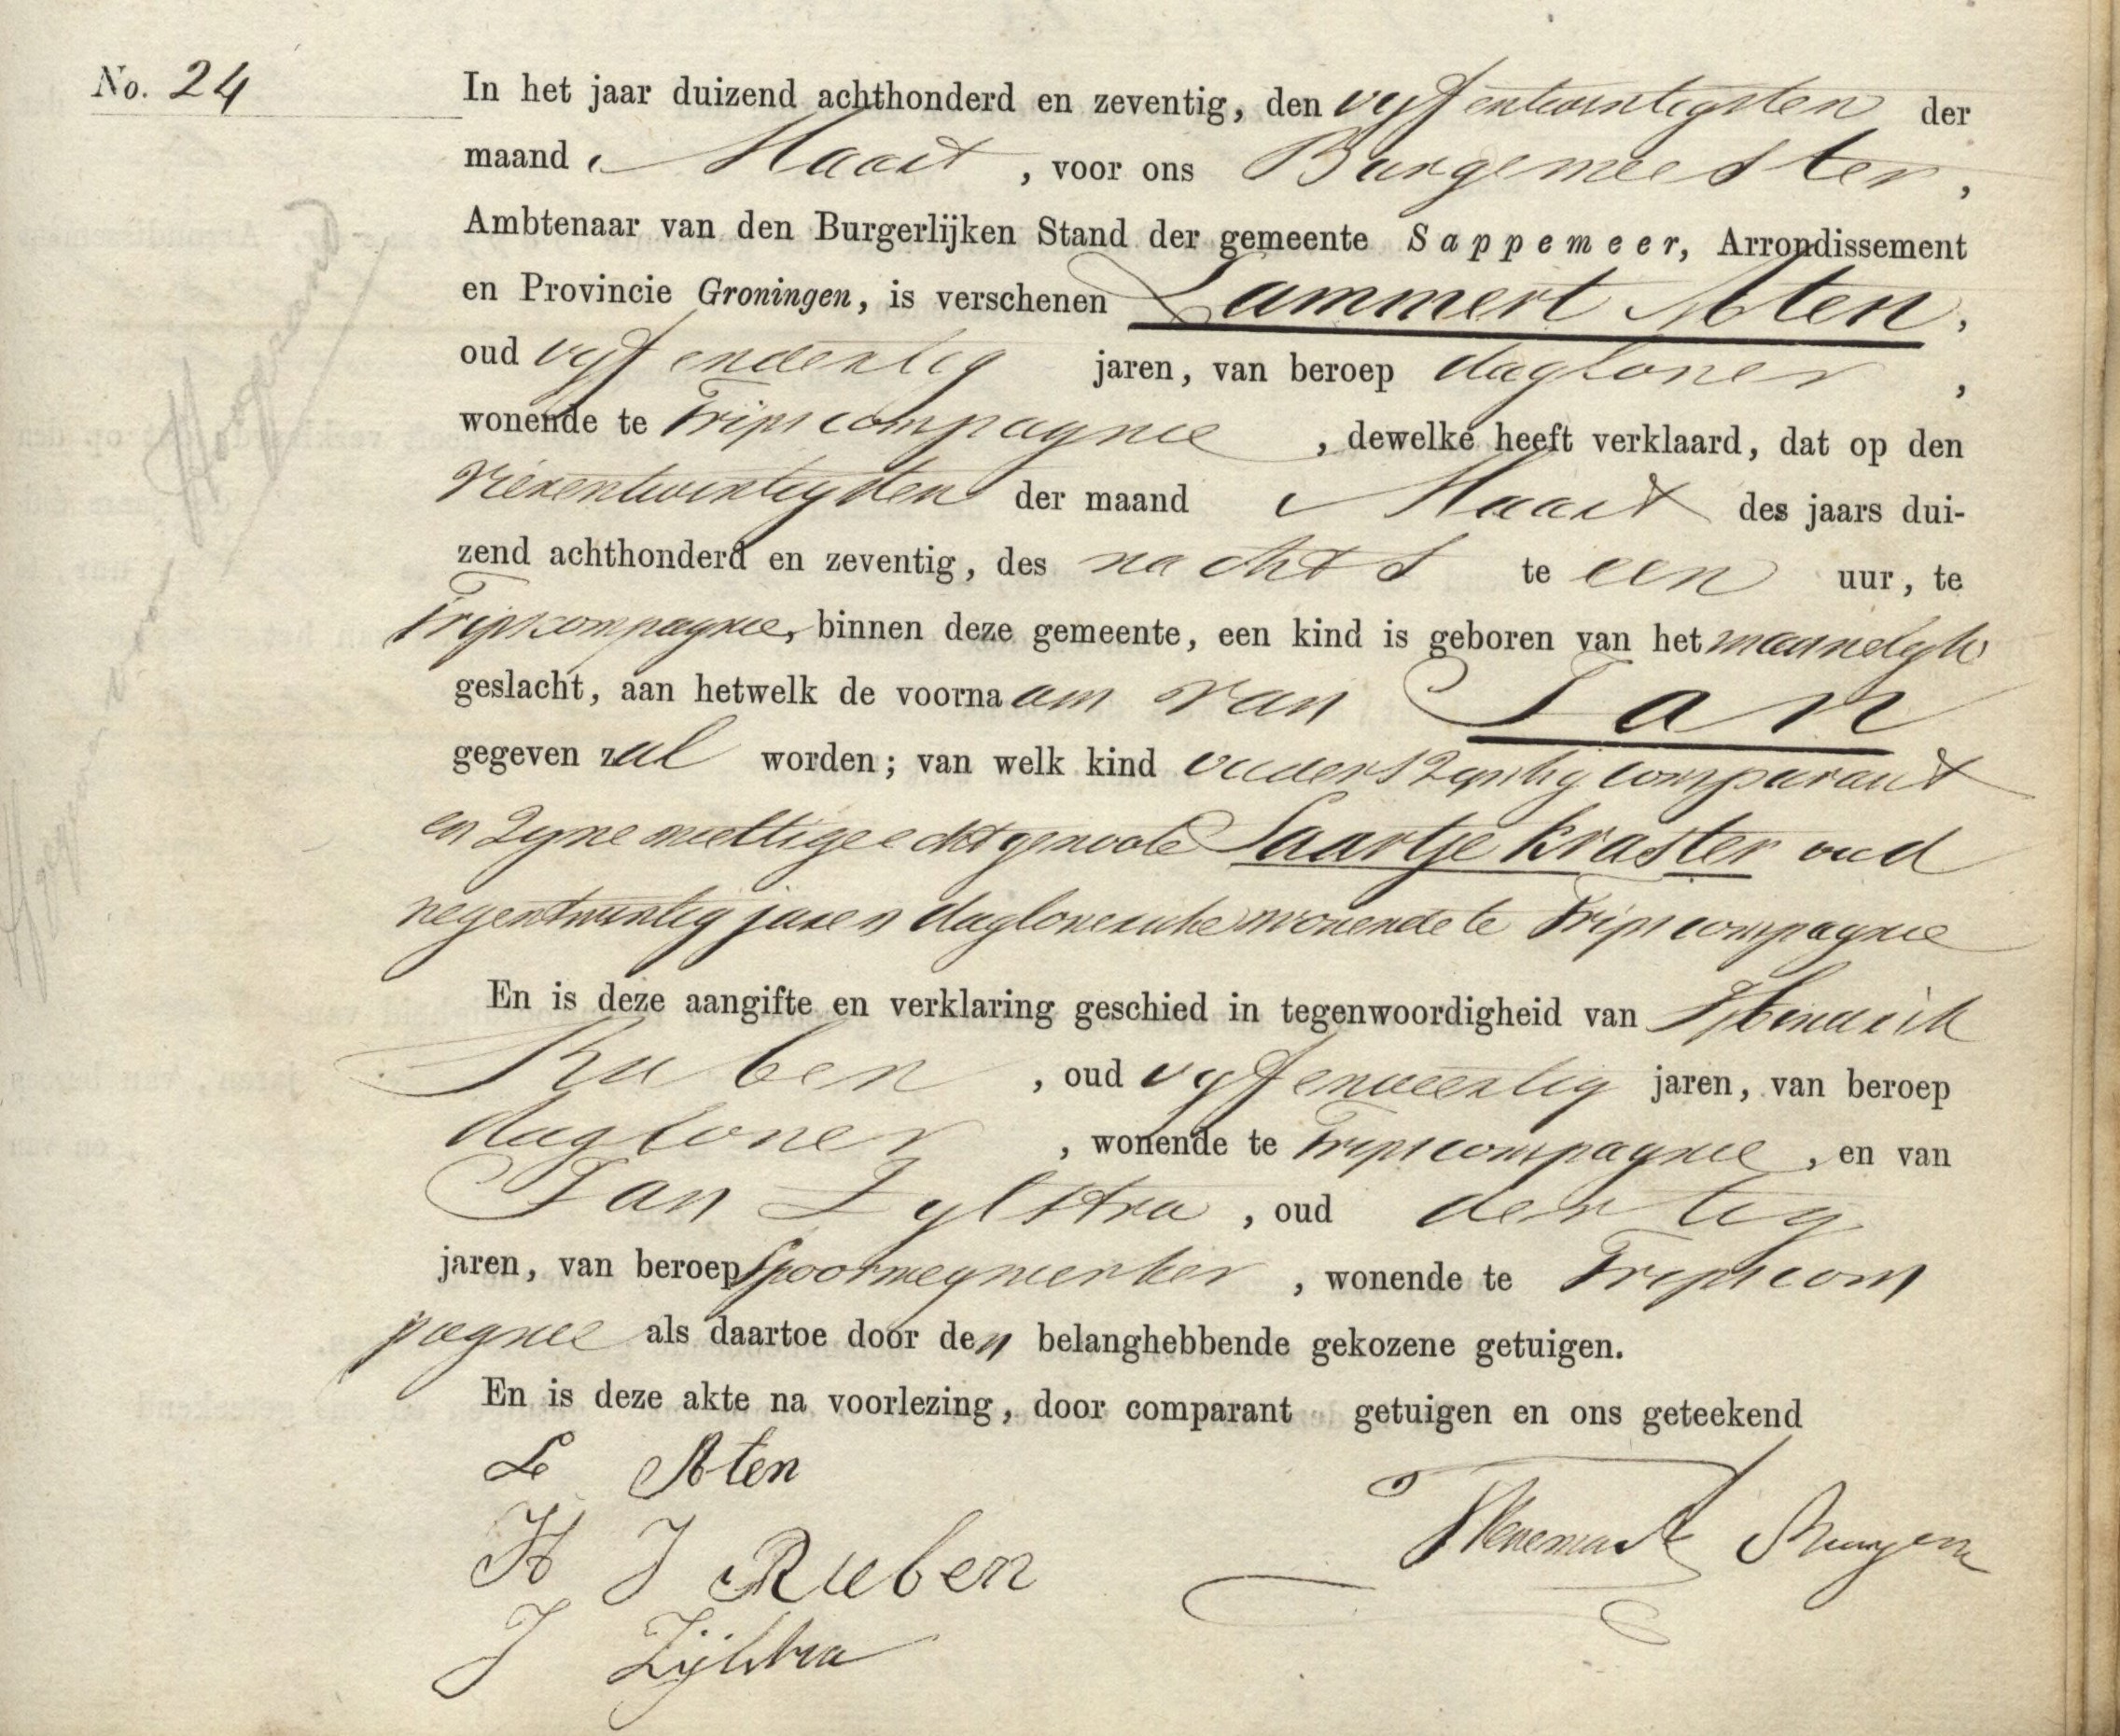 No. 24
In het jaar duizend achthonderd en zeventig, den vijfentwintigsten der
maand Maart, voor ons Burgemeester,
Ambtenaar van den Burgerlijken Stand der gemeente Sappemeer, Arrondissement
en Provincie Groningen, is verschenen Lammert Aten,
oud vijfendertig jaren, van beroep dagloner,
wonende te Tripscompagnie, dewelke heeft verklaard, dat op den
vierentwintigsten der maand Maart des jaars dui-
zend achthonderd en zeventig, des nachts te een uur, te
Tripscompagnie, binnen deze gemeente, een kind is geboren van het mannelijk
geslacht, aan hetwelk de voornaam van Jan
gegeven zal worden; van welk kind ouders zijn hij comparant
en zijne wettige echtgenoote Saartje Kraster oud
negentwintig jaren daglonersche wonende te Tripscompagnie
En is deze aangifte en verklaring geschied in tegenwoordigheid van Hendrik
Ruben, oud vijfenveertig jaren, van beroep
dagloner, wonende te Tripscompagnie, en van
Jan Zylstra, oud dertig
jaren, van beroep Spoorwegwerker, wonende te Tripscom
pagnie als daartoe door den belanghebbende gekozene getuigen.
En is deze akte na voorlezing, door comparant getuigen en ons geteekend
L Aten
H J Ruben
J Zijlstra